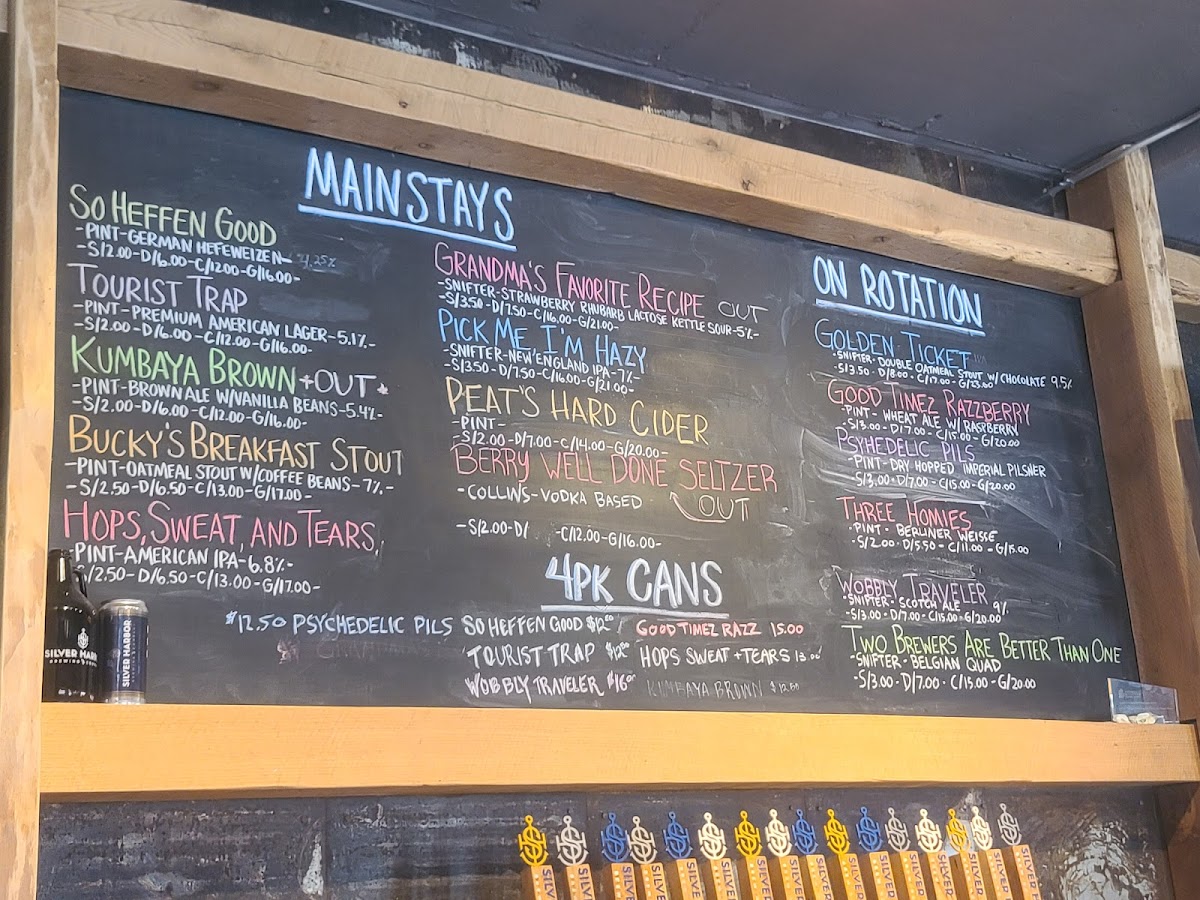 MAINSTAYS
SO HEFFEN GOOD
-PINT-GERMAN HEFEWEIZEN-
-S/2.00-D/6.00-C/12.00-G/16.00-
TOURIST TRAP
-PINT-PREMIUM AMERICAN LAGER-5.1%-
-S/2.00-D/6.00-C/12.00-G/16.00-
KUMBAYA BROWN OUT
-PINT-BROWN ALE W/VANILLA BEANS-5.4%-
-S/2.00-D/6.00-C/12.00-G/16.00-
BUCKY'S BREAKFAST STOUT
-PINT-OATMEAL STOUT W/COFFEE BEANS-7%-
-S/2.50-D/6.50-C/13.00-G/17.00-
HOPS, SWEAT, AND TEARS
PINT-AMERICAN IPA-6.8%-
S/2.50-D/6.50-C/13.00-G/17.00-
GRANDMA'S FAVORITE RECIPE OUT
-SNIFTER-STRAWBERRY RHUBARB LACTOSE KETTLE SOUR-5%-
-S/3.50-D/7.50-C/16.00-G/21.00-
PICK ME, I'M HAZY
-SNIFTER-NEW ENGLAND IPA-7%-
-S/3.50-D/7.50-C/16.00-G/21.00-
PEAT'S HARD CIDER
-PINT-
-S/2.00-D/7.00-C/14.00-G/20.00-
BERRY WELL DONE SELTZER
-COLLINS-VODKA BASED OUT
-S/2.00-D/ -C/12.00-G/16.00-
ON ROTATION
GOLDEN TICKET
-SNIFTER-DOUBLE OATMEAL STOUT W/CHOCOLATE 9.5%
-S/3.50-D/8.00-C/17.00-G/23.00
GOOD TIMEZ RAZZBERRY
-PINT- WHEAT ALE W/RASPBERRY
-S/3.00-D/7.00-C/15.00-G/20.00
PSYHEDELIC PILS
-PINT-DRY HOPPED IMPERIAL PILSNER
-S/3.00-D/7.00-C/15.00-G/20.00
THREE HOMIES
-PINT- BERLINER WEISSE
-S/2.00-D/5.50-C/11.00-G/15.00
WOBBLY TRAVELER
-SNIFTER-SCOTCH ALE 9%
-S/3.00-D/7.00-C/15.00-G/20.00
TWO BREWERS ARE BETTER THAN ONE
-SNIFTER-BELGIAN QUAD
-S/3.00-D/7.00-C/15.00-G/20.00
4PK CANS
$12.50 PSYCHEDELIC PILS SO HEFFEN GOOD $12.00 GOOD TIMEZ RAZZ 15.00
TOURIST TRAP $12.00 HOPS SWEAT+TEARS 13.00
WOBBLY TRAVELER $16.00 KUMBAYA BROWN
SILVER HARBOR